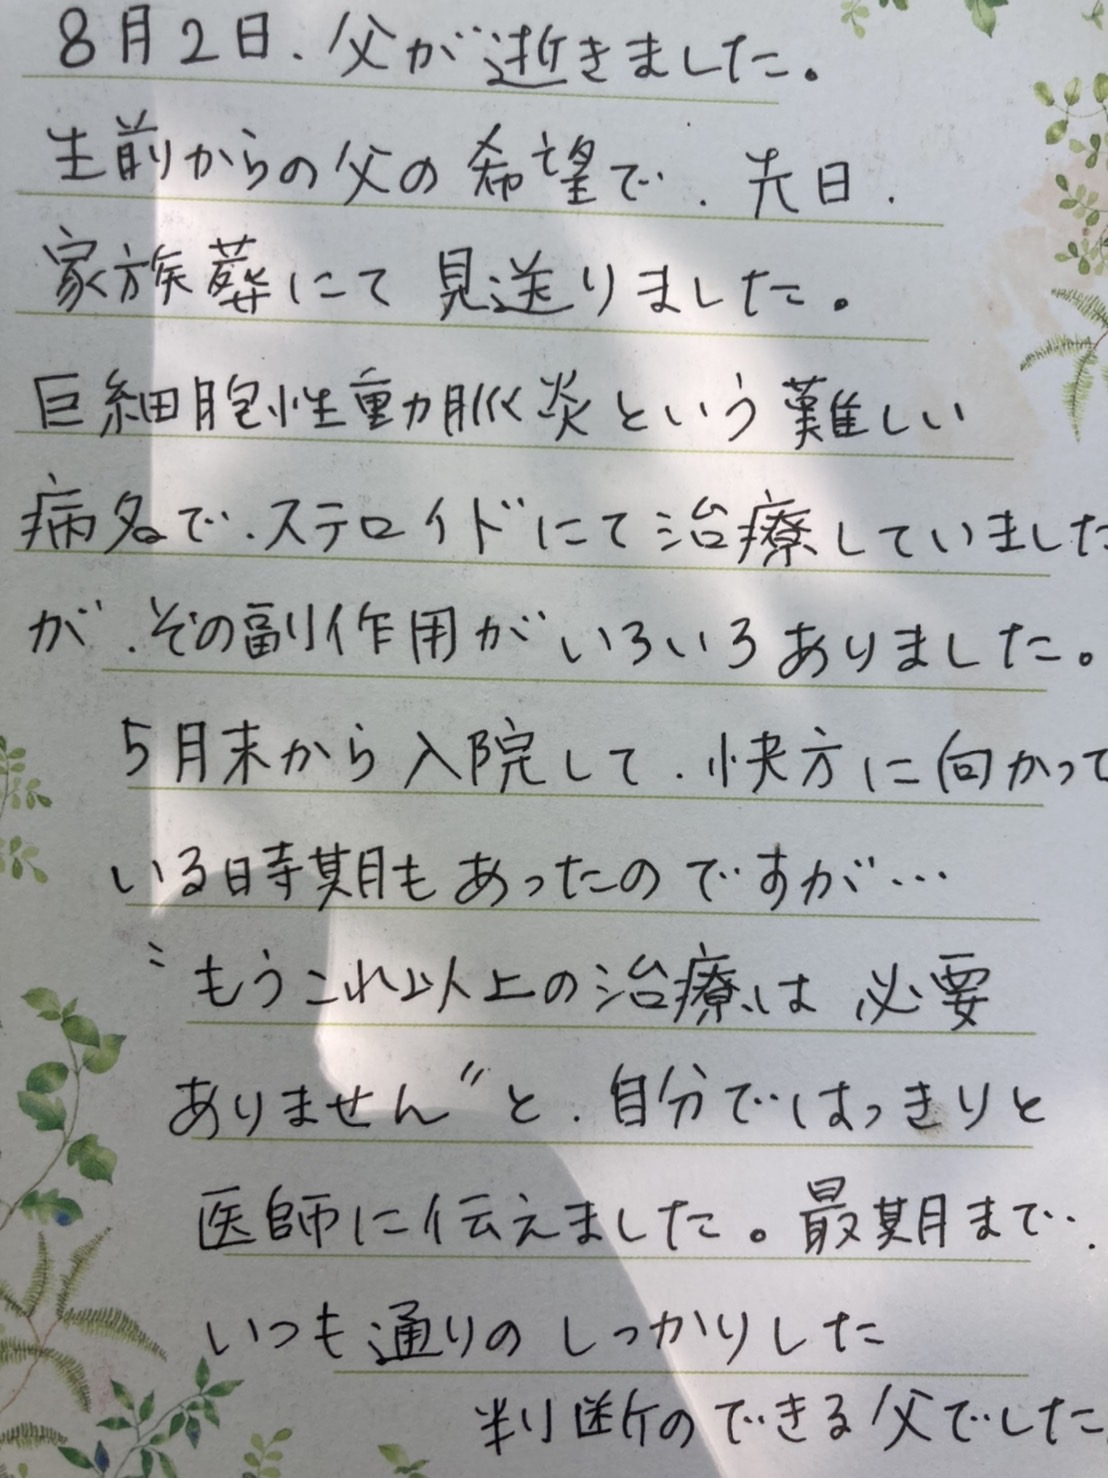 8月2日、父が逝きました。
生前からの父の希望で、先日、
家族葬にて見送りました。
巨細胞性動脈炎という難しい
病名で、ステロイドにて治療していました
が、その副作用がいろいろありました。
5月末から入院して、快方に向かって
いる時期もあったのですが…
〝もうこれ以上の治療は必要
ありません〟と、自分ではっきりと
医師に伝えました。最期まで、
いつも通りのしっかりした
判断のできる父でした